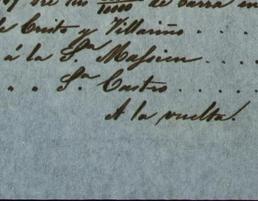 de barra en
de Cristo y Villariño . . .
á la Sra Massieu . . . .
„ „ Sra Castro . . . .
A la vuelta!